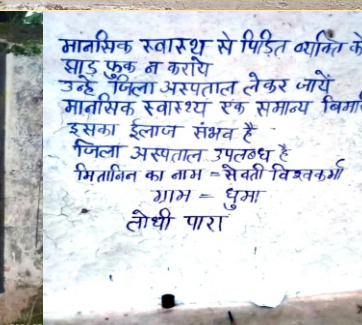 मानसिक स्वास्थ से पिड़ित व्यक्ति के
झाड़ फुक न कराये
उन्हे जिला अस्पताल लेकर जायें
मानसिक स्वास्थ्य एक समान्य बिमा
इसका ईलाज संभव है
जिला अस्पताल उपलब्ध है
मितानिन का नाम = सेवती विश्वकर्मा
ग्राम = धुमा
लोधी पारा